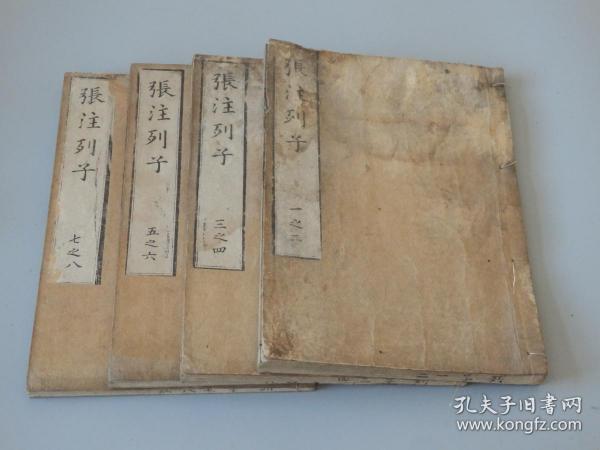 張注列子
一之二
張注列子
三之四
張注列子
五之六
張注列子
七之八
孔夫子旧書网
www.kongfz.com